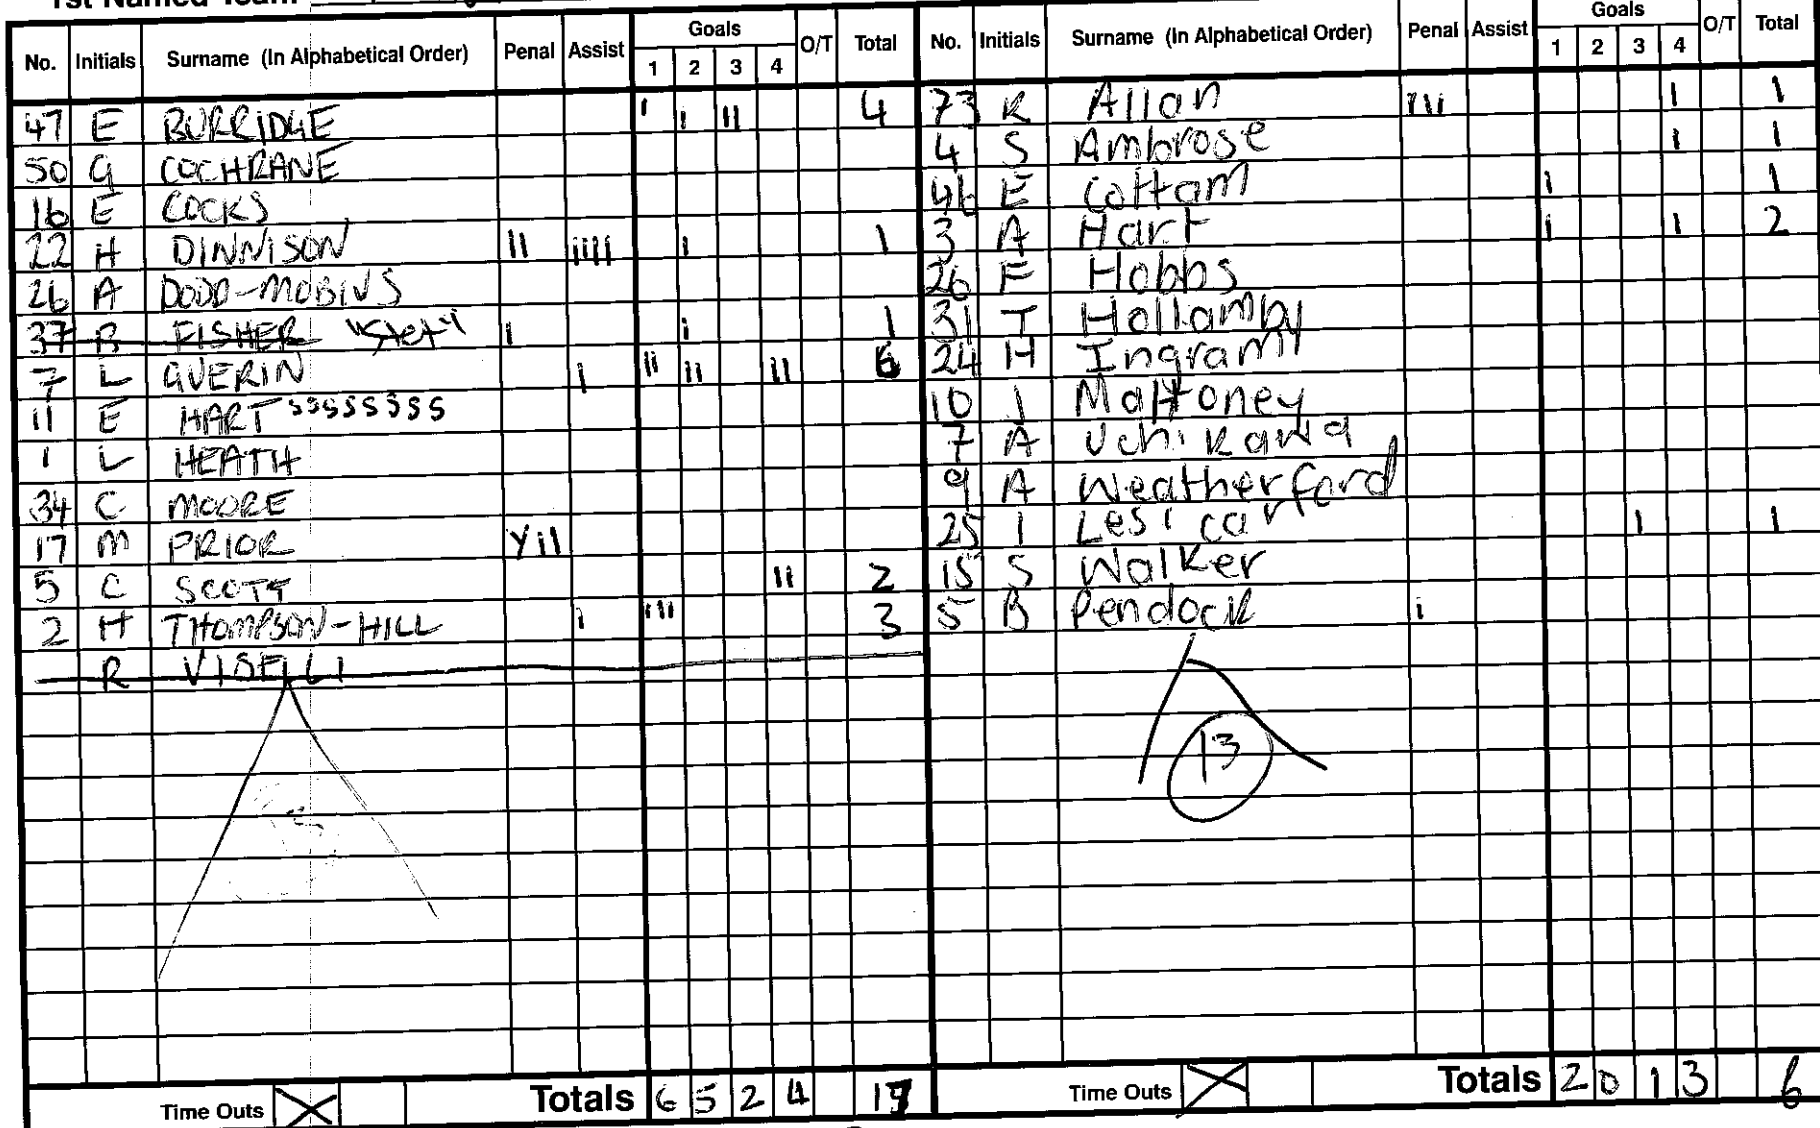 1st Named Team
No. Initials Surname (In Alphabetical Order) Penal Assist Goals 1 2 3 4 O/T Total
47 E BURRIDGE ı ı ıı 4
50 G COCHRANE
16 E COCKS
22 H DINNISON II IIII I 1
26 A DODD-MOBIUS
37 B FISHER "Stet" I I 1
7 L GUERIN I II II II 6
11 E HART SSSSSSSSS
1 L HEATH
34 C MOORE
17 M PRIOR YII
5 C SCOTT II 2
2 H THOMPSON-HILL I III 3
R VISELLI
Time Outs X Totals 6 5 2 4 17
No. Initials Surname (In Alphabetical Order) Penal Assist Goals 1 2 3 4 O/T Total
73 K Allan III I 1
4 S Ambrose I 1
46 E Cottam I 1
3 A Hart I I 2
26 F Hobbs
31 T Hollamby
24 H Ingram
10 J Maltoney
7 A Uchikawa
9 A Weatherford
25 I Lesicar I 1
15 S Walker
5 B Pendock I
13
Time Outs X Totals 2 0 1 3 6